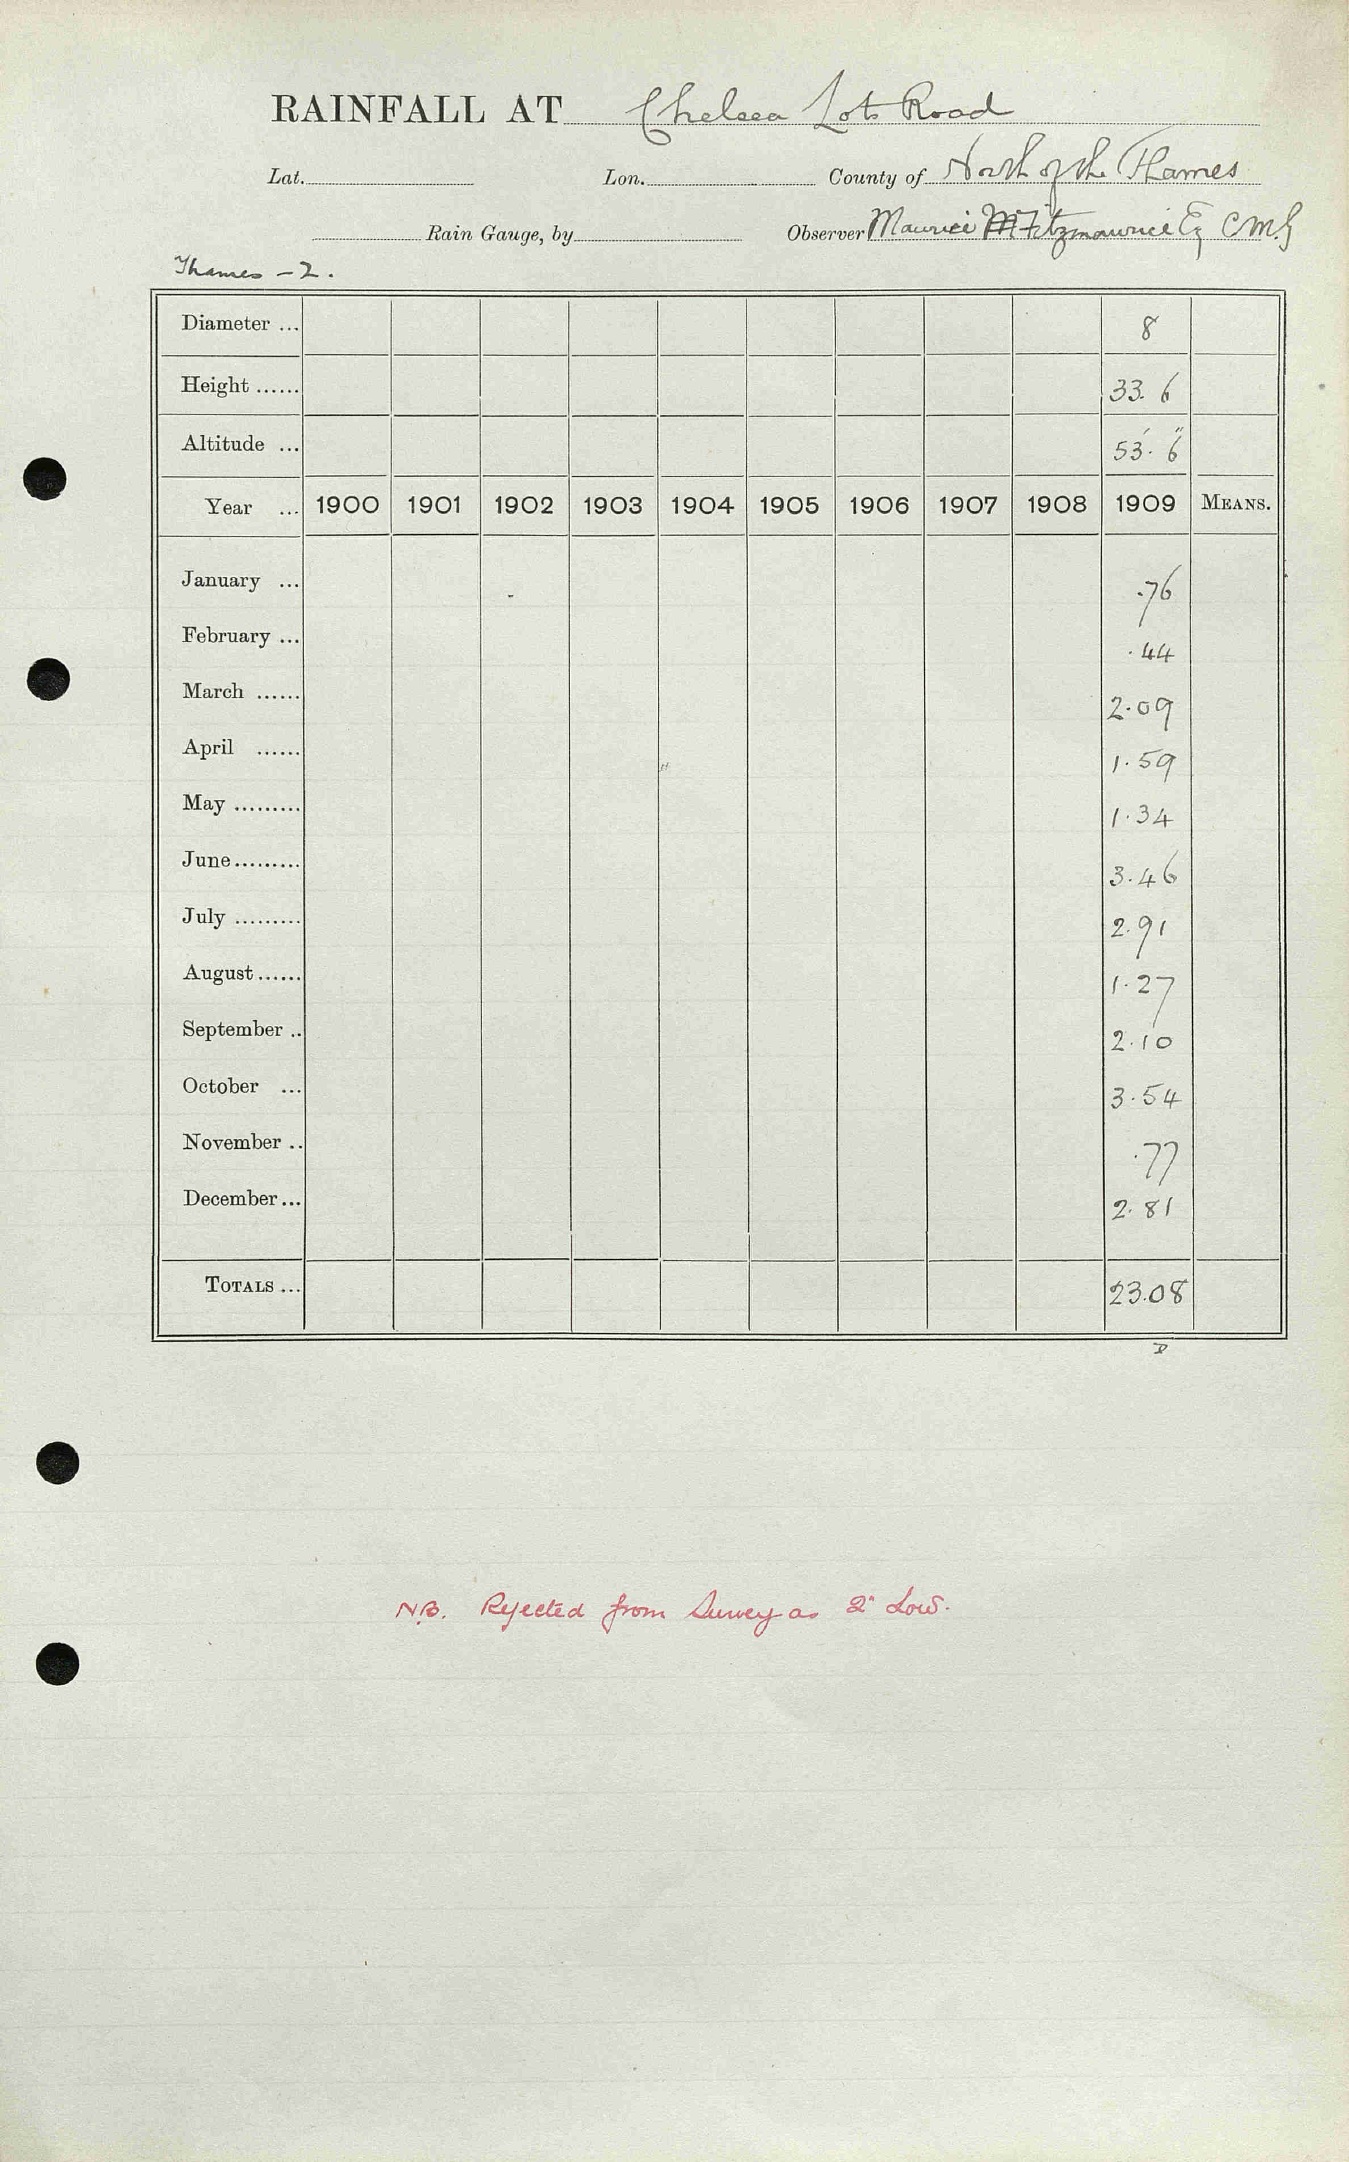 RAINFALL AT Chelsea Lots Road
Lat. Lon. County of North of the Thames
Rain Gauge, by Observer Maurice Fitzmaurice Esq CMG
Thames - 2.
Diameter ... 8
Height ...... 33. 6
Altitude ... 53'. 6"
Year ... 1900 1901 1902 1903 1904 1905 1906 1907 1908 1909 MEANS.
January ... .76
February ... .44
March ...... 2.09
April ...... 1.59
May ......... 1.34
June ......... 3.46
July ......... 2.91
August ...... 1.27
September .. 2.10
October ... 3.54
November .. .77
December ... 2.81
TOTALS ... 23.08
N.B. Rejected from Survey as 2" Low.